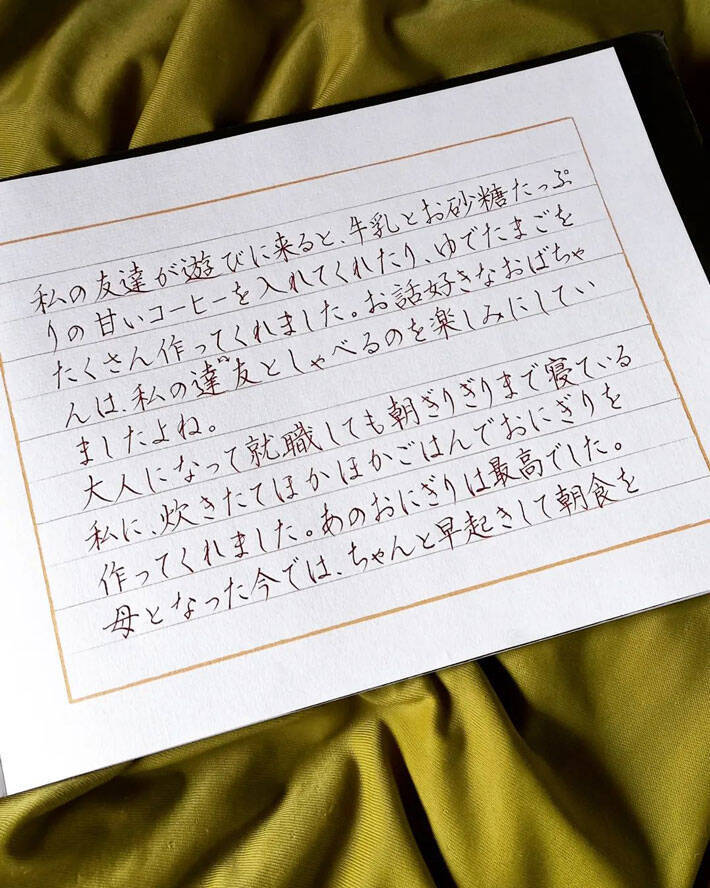 私の友達が遊びに来ると、牛乳とお砂糖たっぷ
りの甘いコーヒーを入れてくれたり、ゆでたまごを
たくさん作ってくれました。お話好きなおばちゃ
んは、私の達友としゃべるのを楽しみにしてい
ましたよね。
大人になって就職しても朝ぎりぎりまで寝ている
私に、炊きたてほかほかごはんでおにぎりを
作ってくれました。あのおにぎりは最高でした。
母となった今では、ちゃんと早起きして朝食を